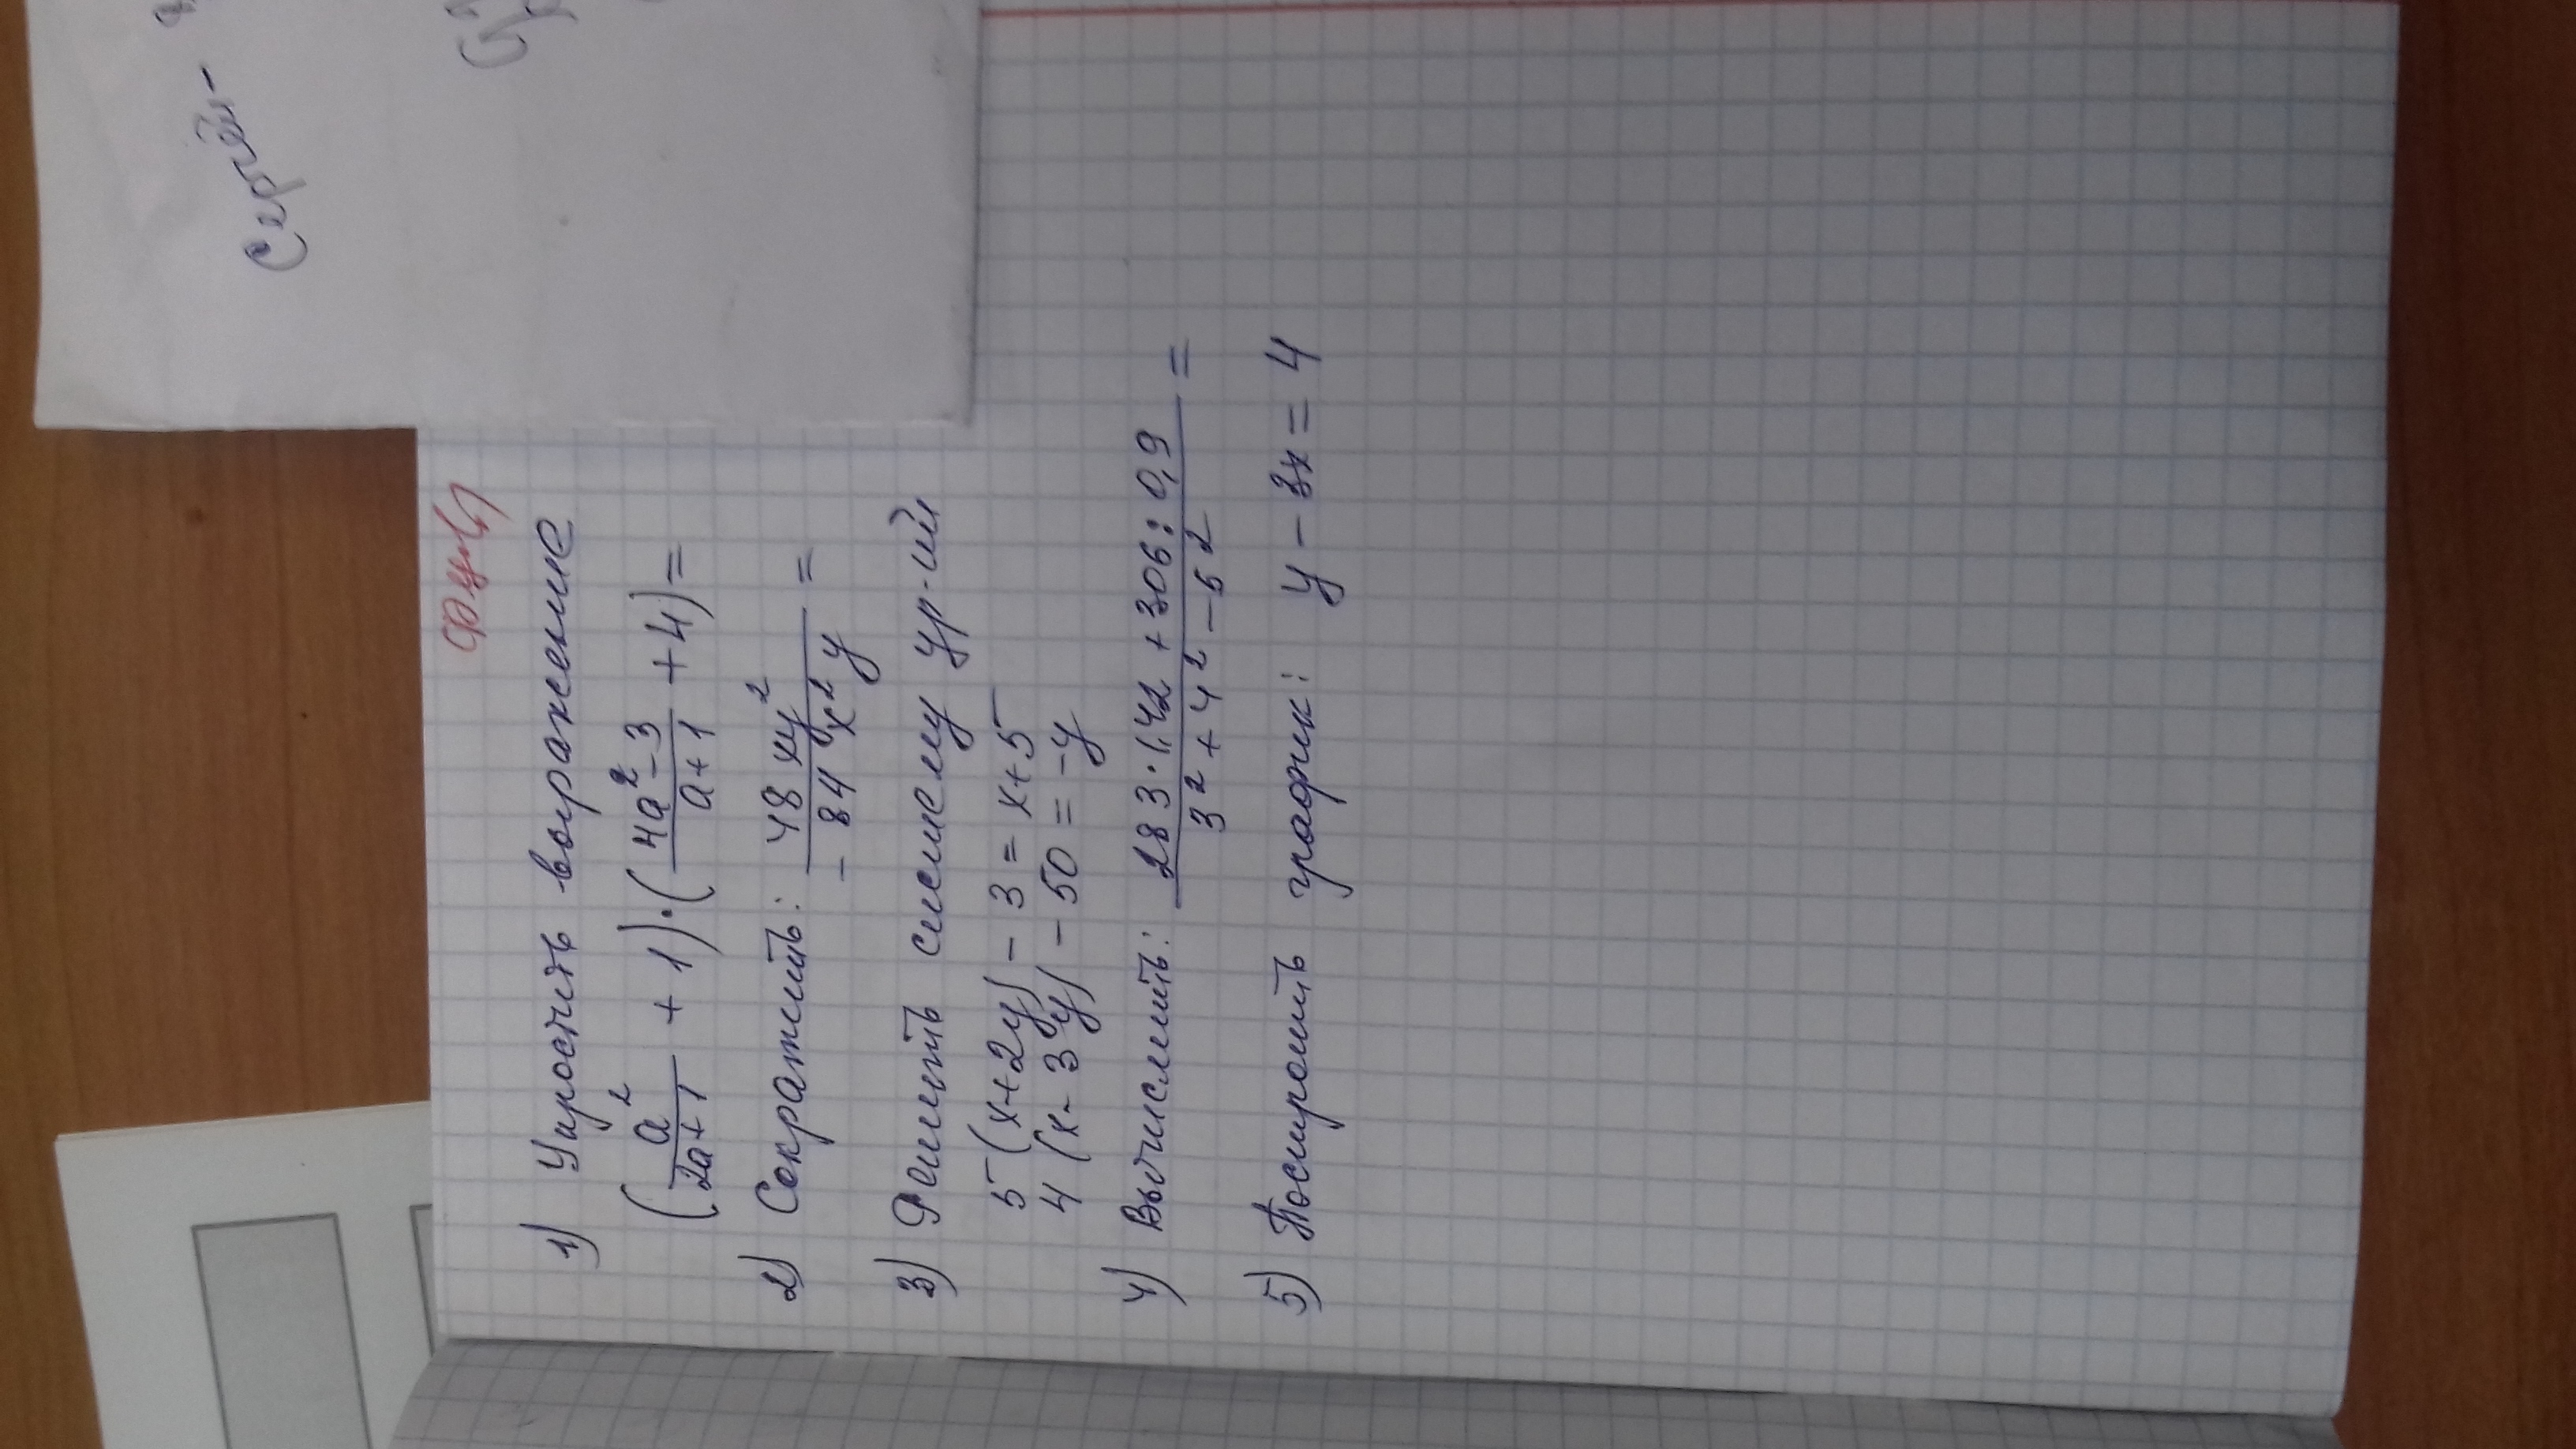 1) Упростить выражение
(a²/2a+1 + 1)·(4a²-3/a+1 + 4)=
2) Сократить: 48xy²/-84x²y =
3) Решить систему ур-ий
5(x+2y)-3=x+5
4(x-3y)-50=-y
4) Вычислить: 283·1,42+306:0,9/3²+4²-5² =
5) Построить график: y-3x=4